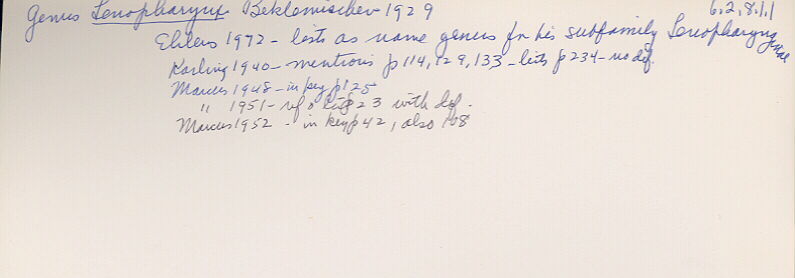 Genus Lenopharynx Beklemischev 1929 6.2.8.1.1
Ehlers 1972 - lists as name genus for his subfamily Lenopharynginae
Karling 1940 - mentions p 114, 129, 133 - lists p 234 - no def.
Marcus 1948 - in key p 125
" 1951 - p 23 with def.
Marcus 1952 - in key p 42, also 108